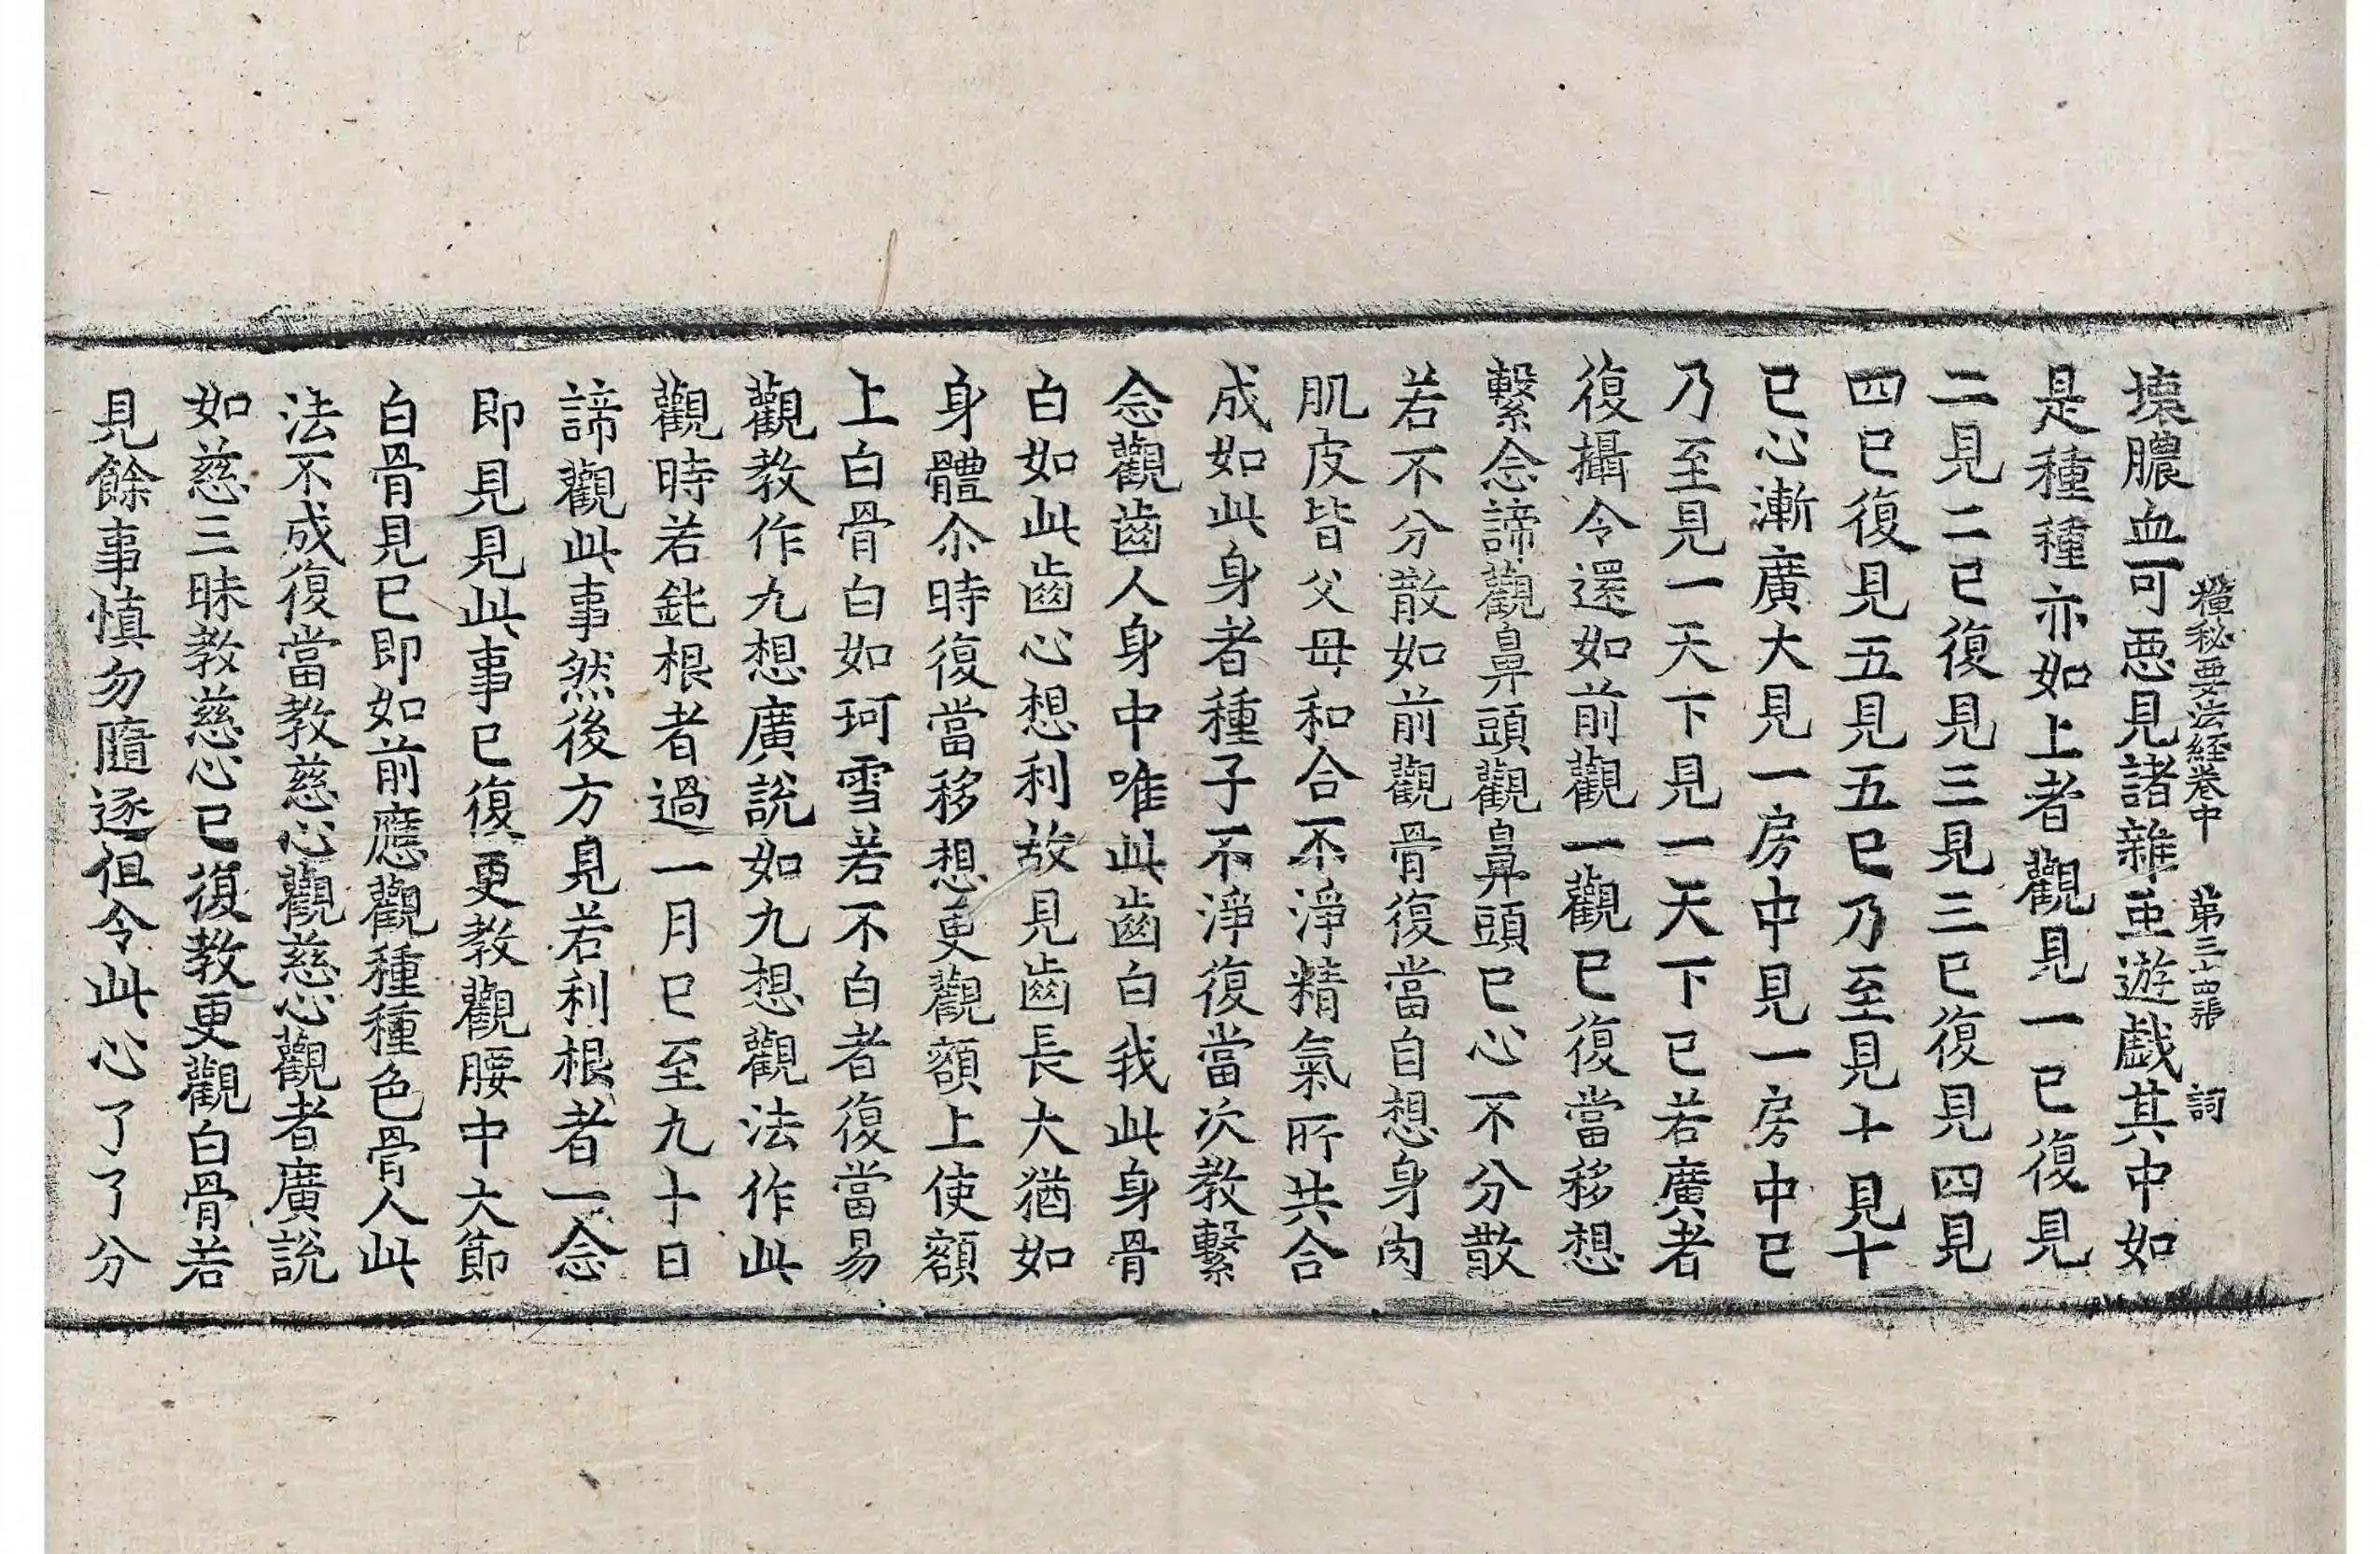 禪秘要法経卷中 第三十四張 詞
壞膿血可惡見諸雜虫遊戲其中如
是種種亦如上者觀見一已復見
二見二已復見三見三已復見四見
四已復見五見五已乃至見十見十
已心漸廣大見一房中見一房中已
乃至見一天下見一天下已若廣者
復攝令還如前觀一觀已復當移想
繫念諦觀鼻頭觀鼻頭已心不分散
若不分散如前觀骨復當自想身肉
肌皮皆父母和合不淨精氣所共合
成如此身者種子不淨復當次教繫
念觀齒人身中唯此齒白我此身骨
白如此齒心想利故見齒長大猶如
身體尒時復當移想更觀額上使額
上白骨白如珂雪若不白者復當易
觀教作九想廣說如九想觀法作此
觀時若鈍根者過一月已至九十日
諦觀此事然後方見若利根者一念
即見見此事已復更教觀腰中大節
白骨見已即如前應觀種種色骨人此
法不成復當教慈心觀慈心觀者廣說
如慈三昧教慈心已復教更觀白骨若
見餘事慎勿隨逐但令此心了了分